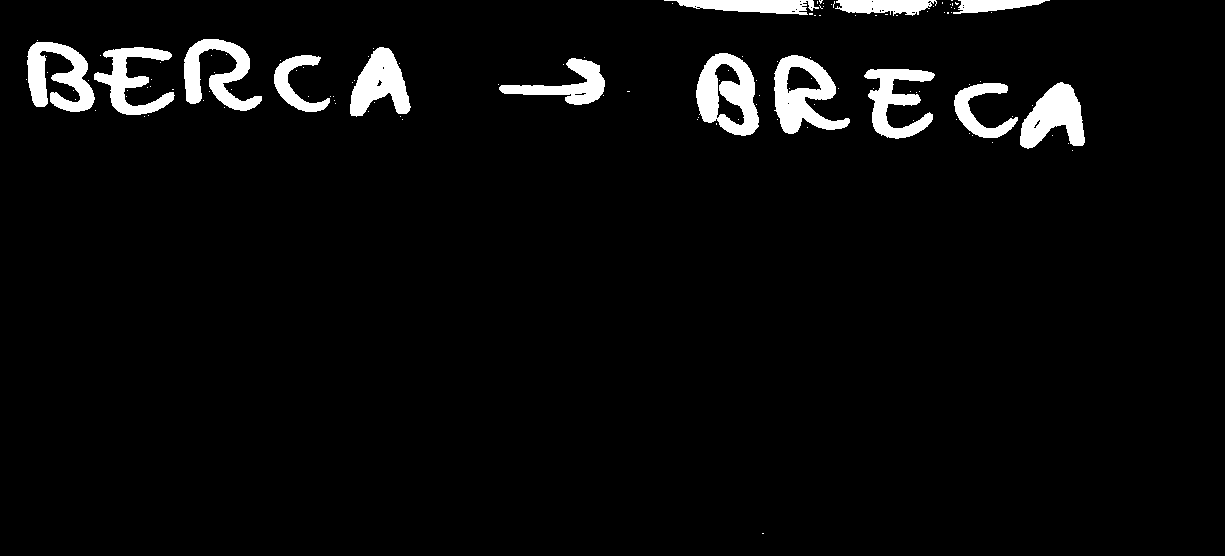 BERCA → BRECA